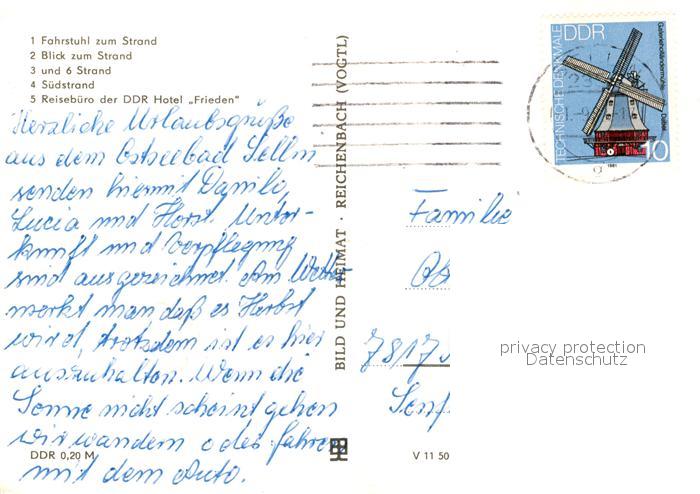 1 Fahrstuhl zum Strand
2 Blick zum Strand
3 und 6 Strand
4 Südstrand
5 Reisebüro der DDR Hotel „Frieden"
Herzliche Urlaubsgrüße
aus dem Ostseebad Sellin
senden hiermit Danilo,
Lucia und Horst. Unter-
kunft und Verpflegung
sind ausgezeichnet. Am Wetter
merkt man daß es Herbst
wird, trotzdem ist es hier
auszuhalten. Wenn die
Sonne nicht scheint gehen
wir wandern oder fahren
mit dem Auto.
DDR 0,20 M
BILD UND HEIMAT · REICHENBACH (VOGTL)
V 11 50
TECHNISCHE DENKMALE
DDR
Galerieholländermühle
10
1981
Familie
7817
Senf
privacy protection
Datenschutz